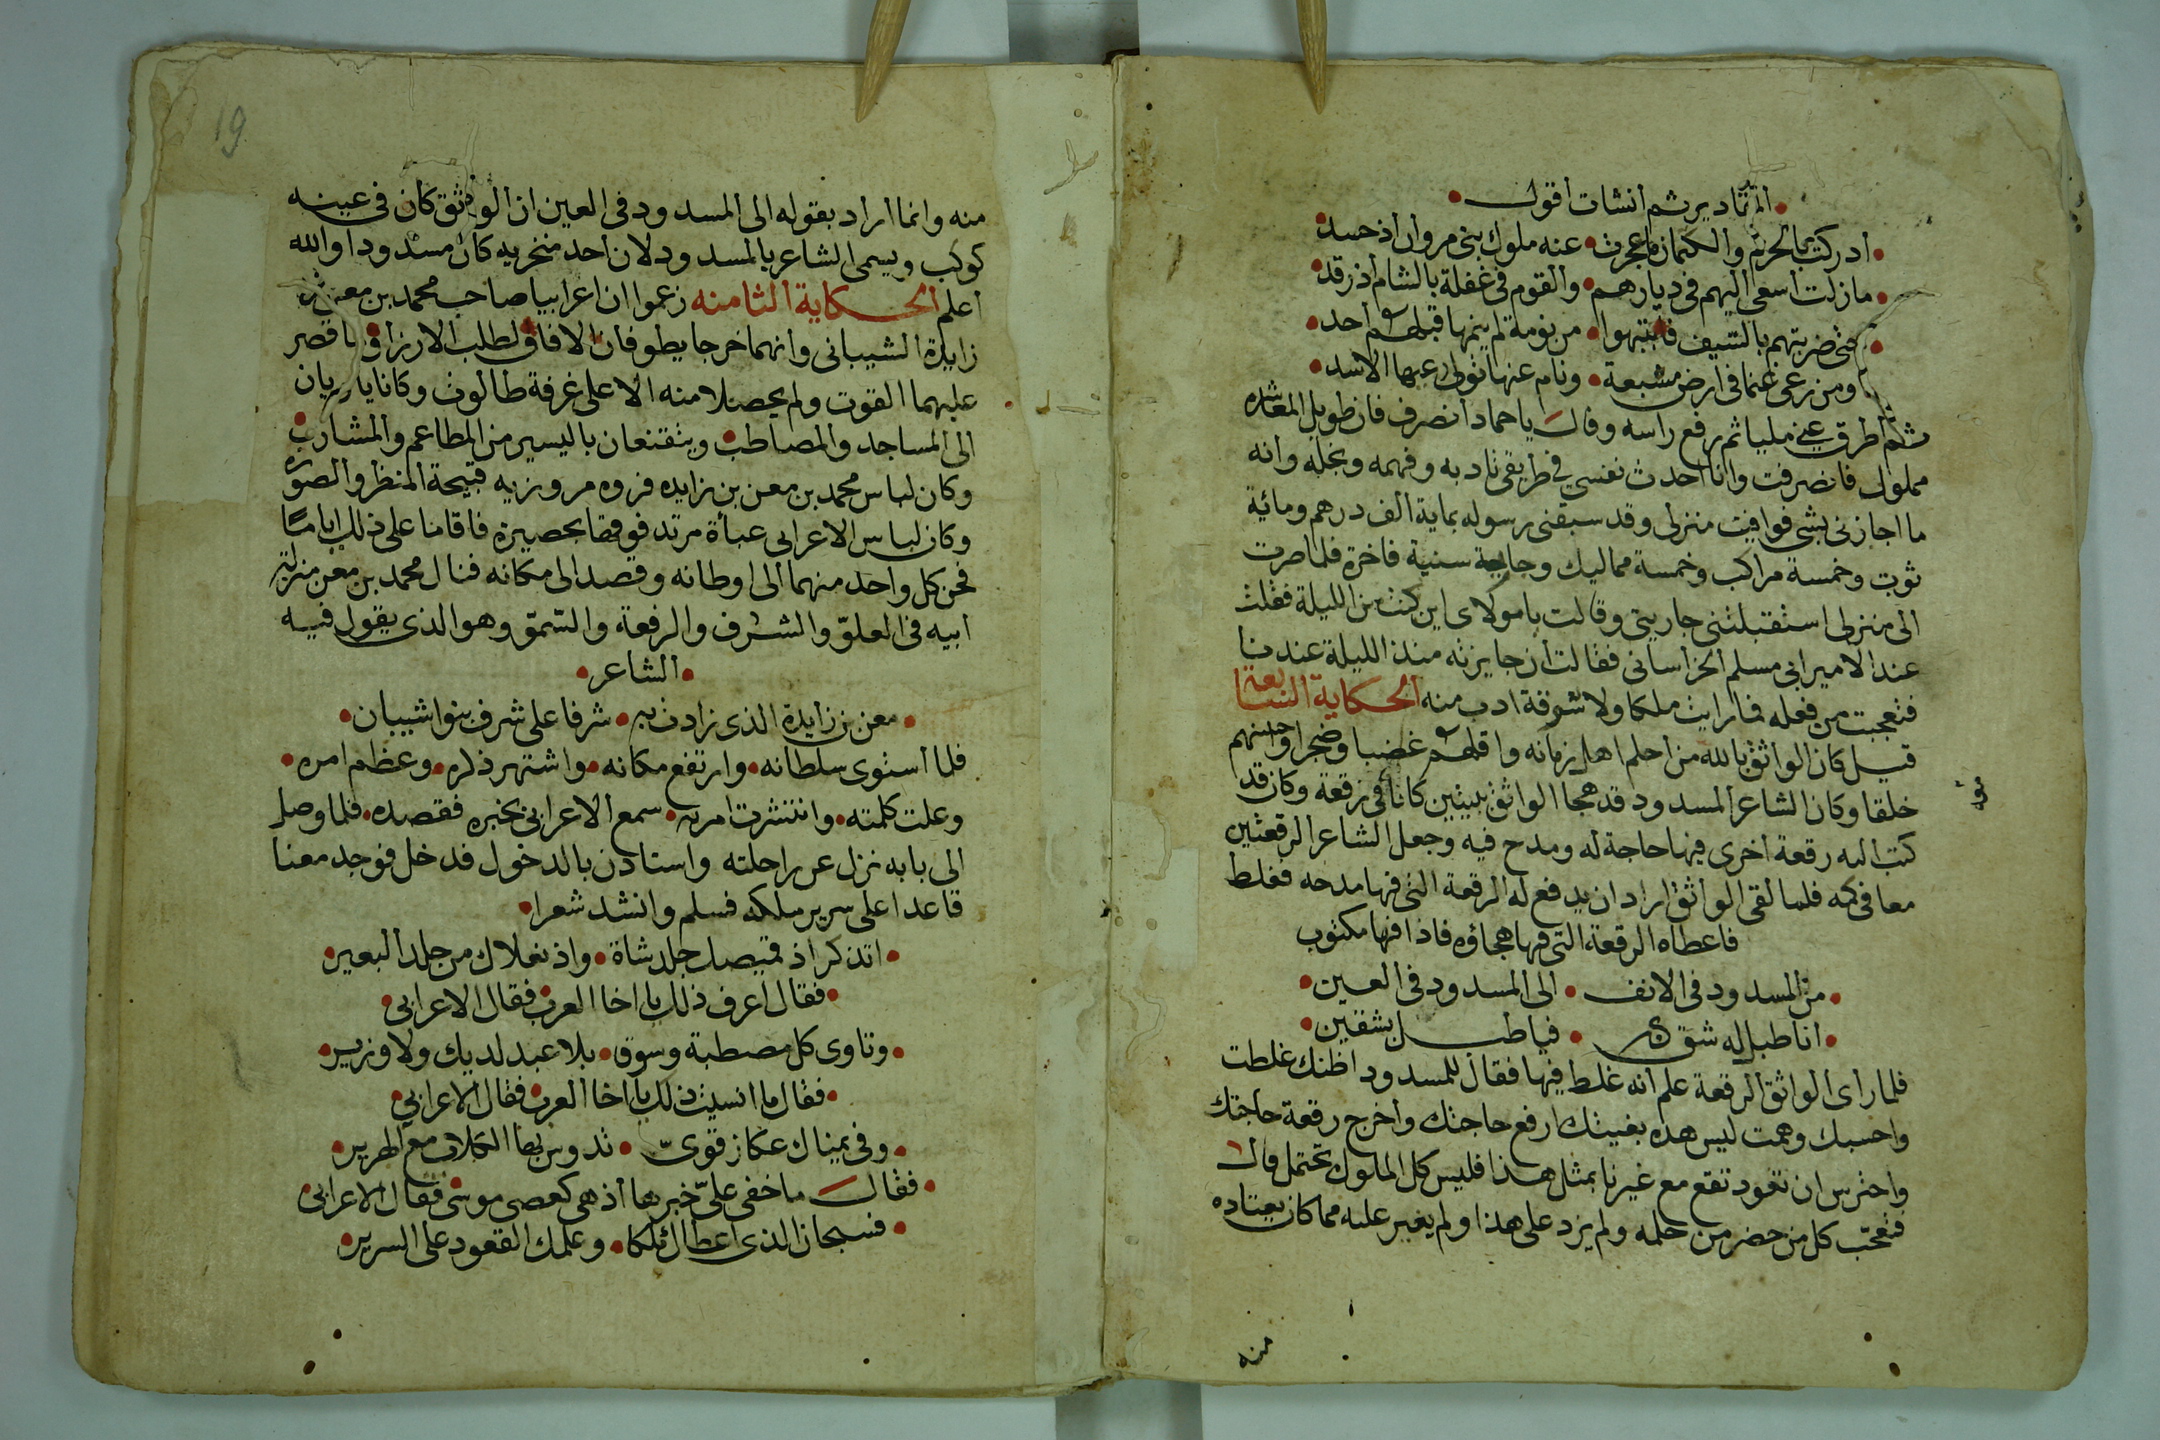 المقادير ثم أنشات أقول
أدركت بالحزم والكتمان ما عجزت عنه ملوك بنى مروان أذ حسد
ما زلت أسعى أليهم فى ديارهم وألقوم فى غفلة بالشام أذ رقد
حتى ضربتهم بالسيف فانتبهوا من نومة لم ينمها قبلهم أحد
ومن رعى غنما فى أرض مشبعة ونام عنها تولى رعيها الاسد
ثم أطرق عنى مليا ثم رفع راسه وقال يا حماد أنصرف فان طويل المعاشره
مملول فانصرفت وانا أحدث نفسي في طريقى بادبه وفهمه وبخله وانه
ما اجازنى بشى فوافيت منزلى وقد سبقنى رسوله بماية ألف درهم ومائية
ثوب وخمسة مراكب وخمسة مماليك وجارية سنية فاخرة فلما صرت
الى منزلى استقبلتنى جاريتى وقالت يا مولاى اين كنت من الليلة فقلت
عند الامير ابى مسلم الخراسانى فقالت أن جايزته منذ الليلة عندنا
فتعجبت من فعله فما رايت ملكا ولا سوقة ادب منه ألحكاية السابعة
قيل كان الواثق بالله من أحلم اهل زمانه واقلهم غضبا وضجرا واحسنهم
خلقا وكان الشاعر المسدود قد هجا الواثق ببيتين كانا فى رقعة وكان قد
كتب اليه رقعة أخرى فيها حاجة له ومدح فيه وجعل الشاعر الرقعتين
معا فى كمه فلما لقى الواثق اراد ان يدفع له الرقعة التى فيها مدحه فغلط
فاعطاه الرقعة التى فيها هجاؤه فاذا فيها مكتوب
من المسدود فى الانف الى المسدود فى العين
انا طبل له شق فيا طبل بشقين
فلما رأى الواثق الرقعة علم انه غلط فيها فقال للمسدود اظنك غلطت
واحسبك وهمت ليس هذه بغيتك ارفع حاجتك وأخرج رقعة حاجتك
واحترس ان تعود تقع مع غيرنا بمثل هذا فليس كل الملوك تحتمل قال
فتعجب كل من حضر من حلمه ولم يزد على هذا ولم يغير عليه مما كان يعتاده
منه
19
منه وانما أراد بقوله الى المسدود فى العين ان الواثق كان فى عينه
كوكب ويسمى الشاعر بالمسدود لان أحد منخريه كان مسدودا والله
أعلم ألحكاية ألثامنه زعموا ان اعرابيا صاحب محمد بن معن بن
زايدة الشيبانى وانهما خرجا يطوفان الافاق لطلب الارزاق فاقصر
عليهما القوت ولم يحصلا منه الا على غرفة طالوت وكانا ياويان
الى المساجد والمصاطب ويتقنعان باليسير من المطاعم والمشارب
وكان لباس محمد بن معن بن زايده فروه مروزيه قبيحة المنظر والصوره
وكان لباس الاعرابى عبأة مرتد فوقها بحصيرة فاقاما على ذلك اياما
فحن كل واحد منهما الى اوطانه وقصد الى مكانه فنال محمد بن معن منزلة
ابيه فى العلو والشرف والرفعة والسمو وهو الذى يقول فيه
الشاعر
معن بن زايدة الذى زادت به شرفا على شرف بنوا شيبان
فلما أستوى سلطانه وارتفع مكانه واشتهر ذكره وعظم امره
وعلت كلمته وانتشرت امرته سمع الاعرابى بخبره فقصده فلما وصل
الى بابه نزل عن راحلته واستاذن بالدخول فدخل فوجد معنا
قاعدا على سرير ملكه فسلم وانشد شعرا
اتذكر اذ قميصك جلد شاة واذ نعلاك من جلد ألبعير
فقال أعرف ذلك يا اخا العرب فقال الاعرابى
وتاوى كل مصطبة وسوق بلا عبد لديك ولا وزير
فقال ما انسيت ذلك يا اخا العرب فقال الاعرابى
وفى يمناك عكاز قوىّ تدوس بها الكلاب مع الهرير
فقال ما خفى علىّ خبرها أذ هى كعصى موسى فقال الاعرابى
فسبحان الذى اعطاك ملكا وعلمك القعود على السرير